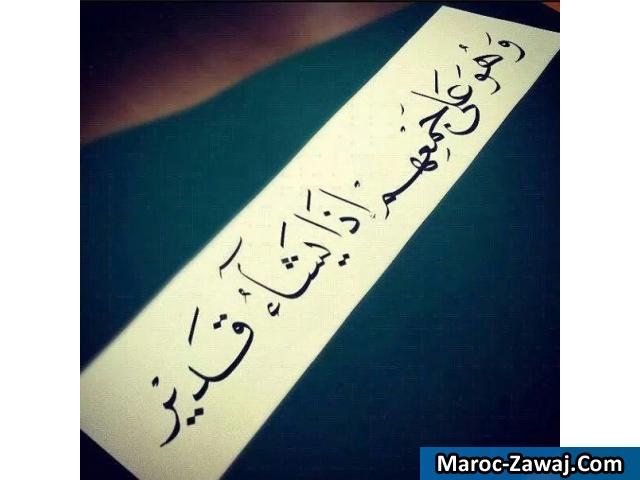 وَهُوَ عَلَى جَمْعِهِمْ إِذَا يَشَآءُ قَدِيْر
Maroc-Zawaj.Com